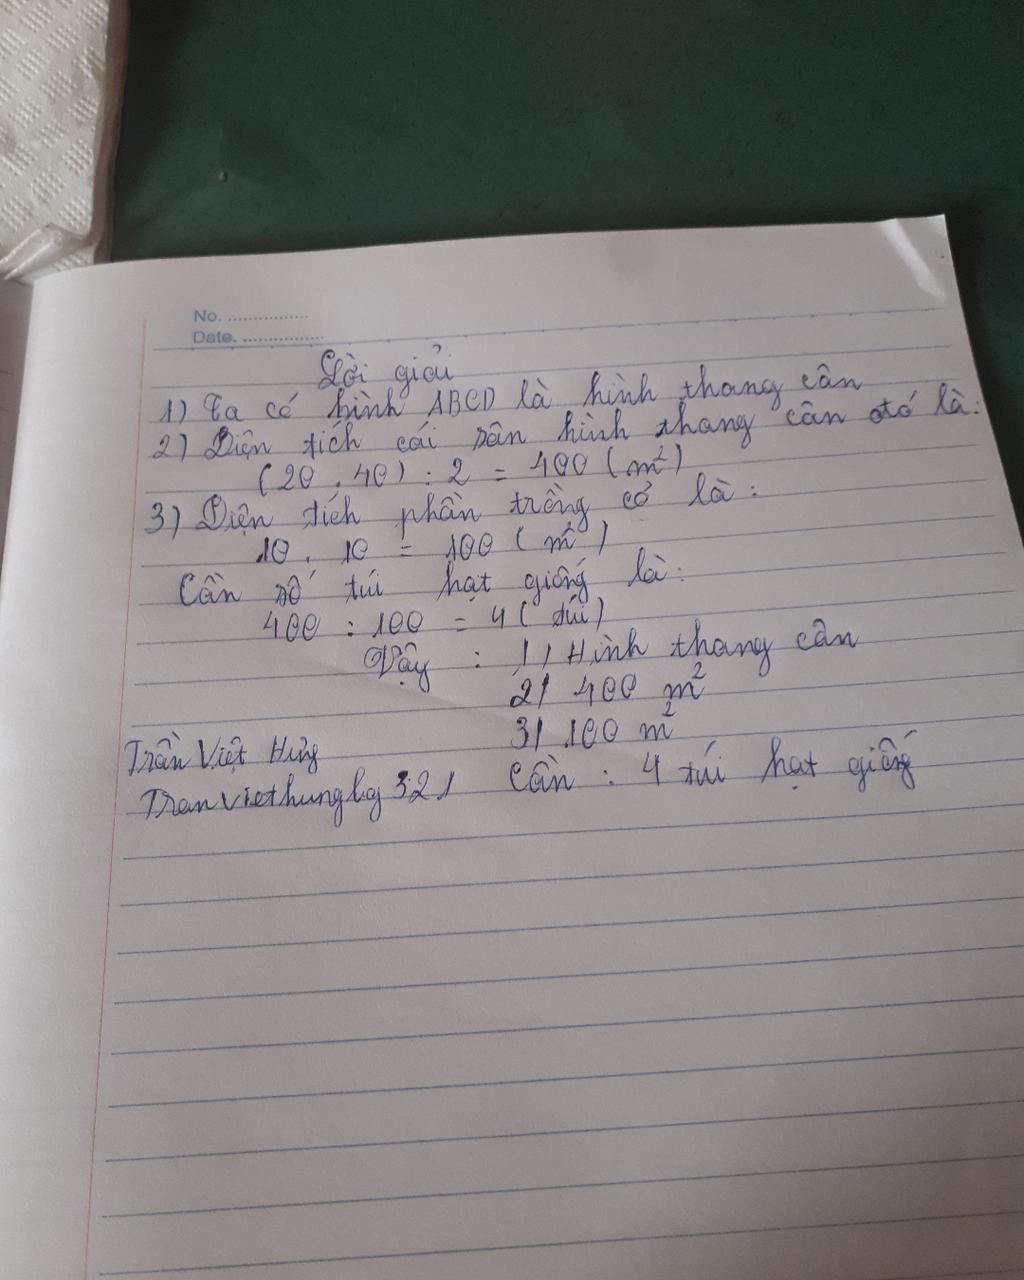 No. ................
Date. ................
Lời giải
1) Ta có hình ABCD là hình thang cân
2) Diện tích cái sân hình thang cân đó là:
(20 . 40) : 2 = 400 (m²)
3) Diện tích phần trồng cỏ là:
10 . 10 = 100 (m²)
Cần số túi hạt giống là:
400 : 100 = 4 (túi)
Vậy : 1) Hình thang cân
2) 400 m²
3) 100 m²
Trần Việt Hưng
Cần : 4 túi hạt giống
Tranviethunglg321